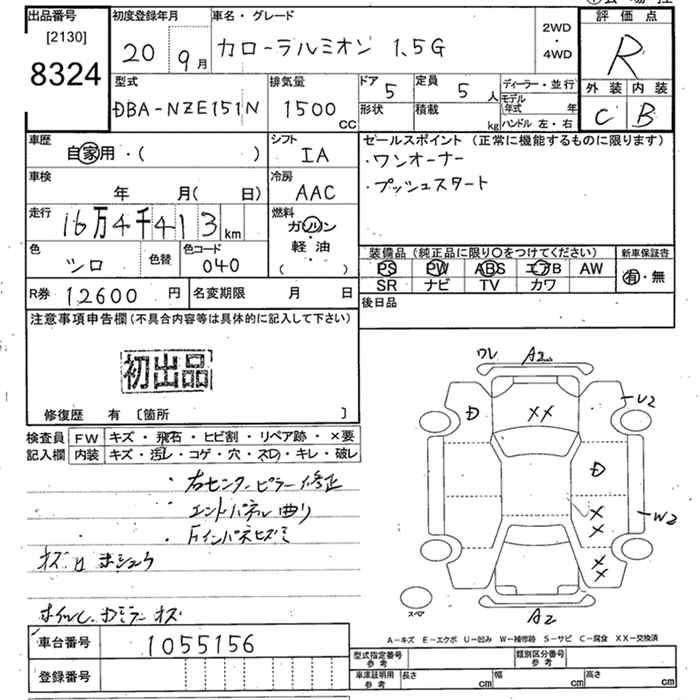 出品番号
[2130]
8324
初度登録年月
20 9月
車名・グレード
カローラルミオン 1.5G
2WD
・
4WD
評価点
R
外装 内装
C B
型式
DBA-NZE151N
排気量
1500 cc
ドア 5
形状
定員 5 人
積載 kg
ディーラー・並行
モデル年式 年
ハンドル 左・右
車歴
自家用・( )
シフト
IA
セールスポイント (正常に機能するものに限ります)
・ワンオーナー
・プッシュスタート
車検
年 月( 日)
冷房
AAC
走行
16万4千413km
燃料
ガソリン
軽・油
( )
色
シロ
色替
色コード
040
装備品 (純正品に限り○をつけてください)
PS PW ABS エアB AW
SR ナビ TV カワ
新車保証書
有・無
R券 12600 円
名変期限 月 日
後日品
注意事項申告欄 (不具合内容等は具体的に記入して下さい)
初出品
修復歴 有 [箇所 ]
検査員 FW キズ・飛石・ヒビ割・リペア跡・×要
記入欄 内装 キズ・汚レ・コゲ・穴・スレ・キレ・破レ
・右センターピラー修正
・エンドパネル曲り
・FインパネヒズミI
ワレ A2
U2
D XX
D
X
X
W2
X
X
スペア
A2
A-キズ E-エクボ U-凹み W-補修跡 S-サビ C-腐食 XX-交換済
車台番号 1055156
登録番号
型式指定番号 参考
類別区分番号 参考
車庫証明用 参考
長さ cm 幅 cm 高さ cm